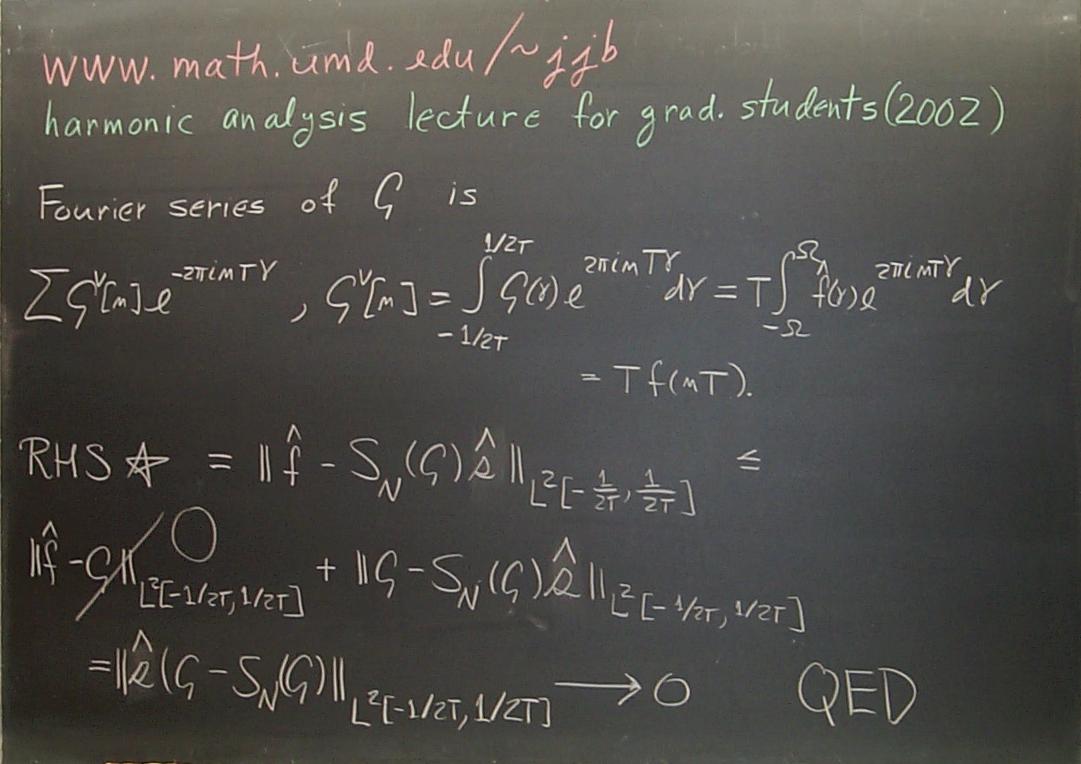 www.math.umd.edu/~jjb
harmonic analysis lecture for grad. students (2002)
Fourier series of G is
∑ G^∨[m] e^{-2πimTγ}, G^∨[m] = ∫_{-1/2T}^{1/2T} G(γ) e^{2πimTγ} dγ = T ∫_{-Ω}^{Ω} f̂(γ) e^{2πimTγ} dγ
= T f(mT).
RHS ☆ = ‖f̂ - S_N(G) ŝ‖_{L²[-1/2T, 1/2T]} ≤
‖f̂ - G‖_{L²[-1/2T, 1/2T]} 0 + ‖G - S_N(G) ŝ‖_{L²[-1/2T, 1/2T]}
= ‖ŝ(G - S_N(G)‖_{L²[-1/2T, 1/2T]} ⟶ 0 QED